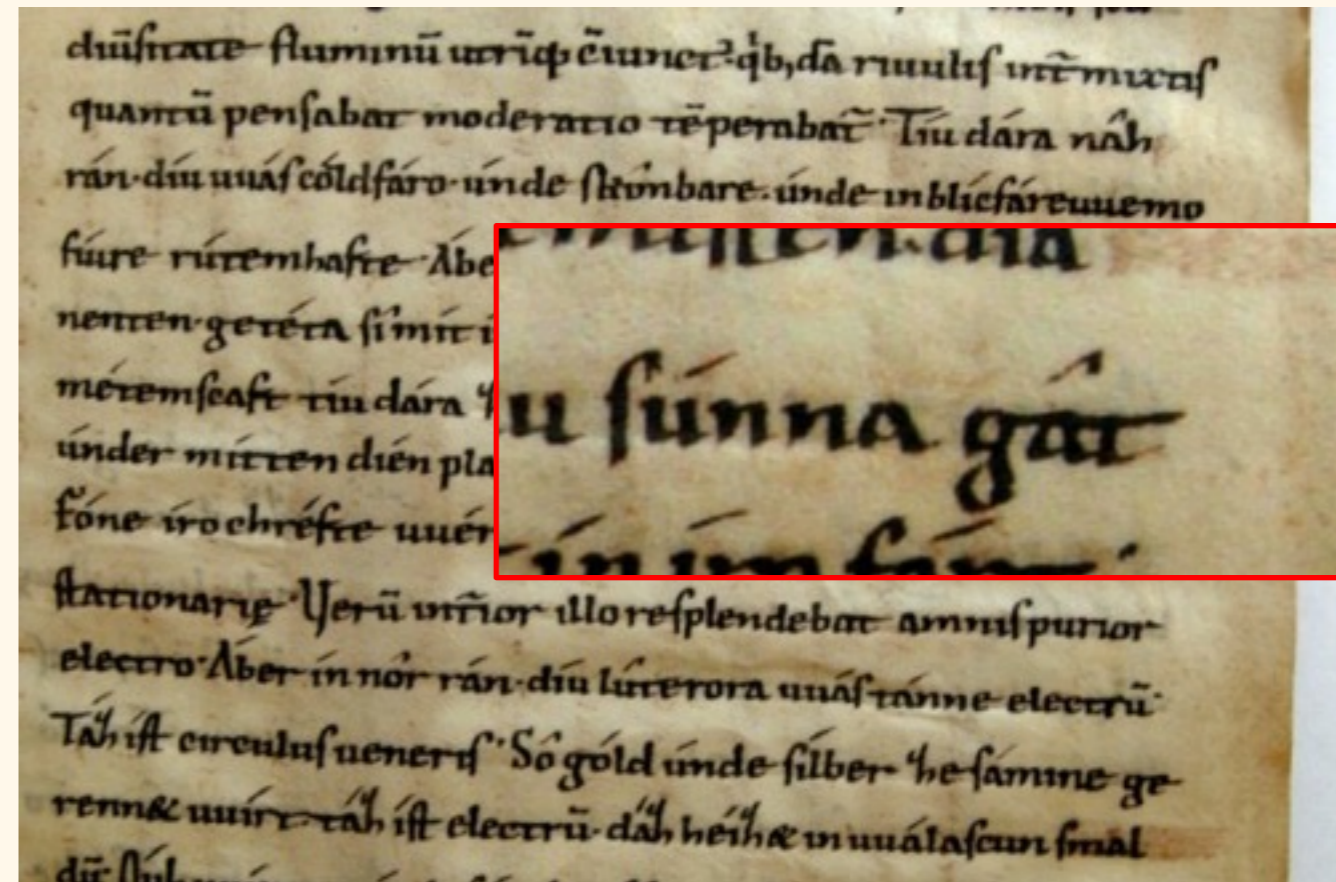 diūsitate fluminū utrīq; c̄iunct᷑ q̇b; dā riuulis int̄mixtis
quantū pensabat moderatio tēperabat̄. Tiu dára nâh
rán. díu uuás cóldfáro. únde skînbare. únde in blicfáreuuemo
fíure rótemhafte. Ábe
nenten. getéta sî mit i
métemscaft tiu dára z
únder mitten dién pla
Fóne íro chréfte uuér
stationarię. Verū int̄ior illo resplendebat amnis purior
electro. Áber ín nôr rán. díu lûterora uuás tánne electrū.
Táz íst circulus ueneris. Sô góld únde silber ze sámine ge
renn& uuírt. táz íst electrū. dáz héiz& in uuálascun smal
u súnna gât